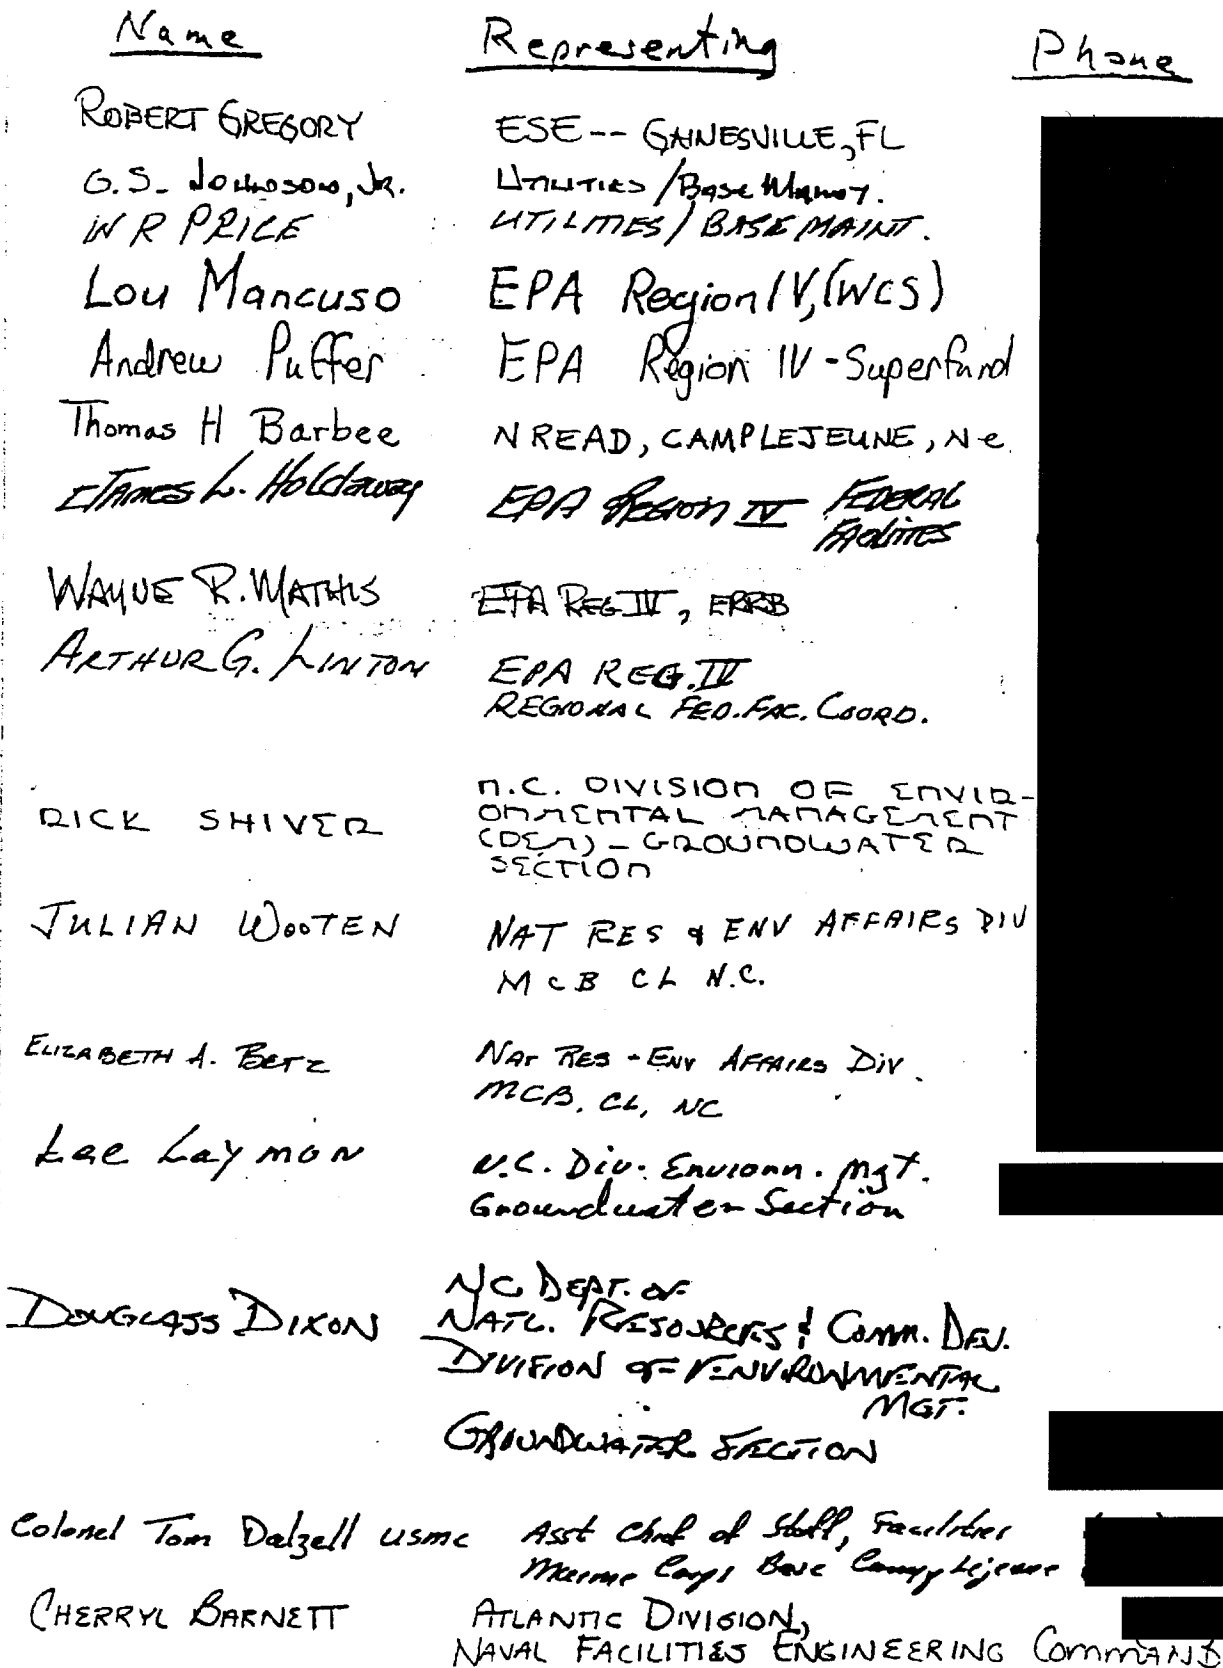 Name Representing Phone
ROBERT GREGORY ESE-- GAINESVILLE, FL
G.S. Johnson, Jr. Utilities/Base Maint.
W R PRICE UTILITIES/BASE MAINT.
Lou Mancuso EPA Region IV, (WCS)
Andrew Puffer EPA Region IV - Superfund
Thomas H Barbee NREAD, CAMP LEJEUNE, NC
James L. Holdaway EPA Region IV Federal
Facilities
WAYNE R. MATHIS EPA REG IV, ERRB
ARTHUR G. LINTON EPA REG. IV
REGIONAL FED. FAC. COORD.
N.C. DIVISION OF ENVIR-
RICK SHIVER ONMENTAL MANAGEMENT
(DEM) - GROUNDWATER
SECTION
JULIAN WOOTEN NAT RES & ENV AFFAIRS DIV
MCB CL N.C.
ELIZABETH A. BETZ NAT RES - ENV AFFAIRS DIV.
MCB, CL, NC
Lee Laymon N.C. Div. Environn. Mgt.
Groundwater Section
NC DEPT. OF
DOUGLASS DIXON NATL. RESOURCES & COMM. DEV.
DIVISION OF ENVIRONMENTAL
MGT.
GROUNDWATER SECTION
Colonel Tom Dalzell USMC Asst Chief of Staff, Facilities
Marine Corps Base Camp Lejeune
CHERRYL BARNETT ATLANTIC DIVISION,
NAVAL FACILITIES ENGINEERING COMMAND